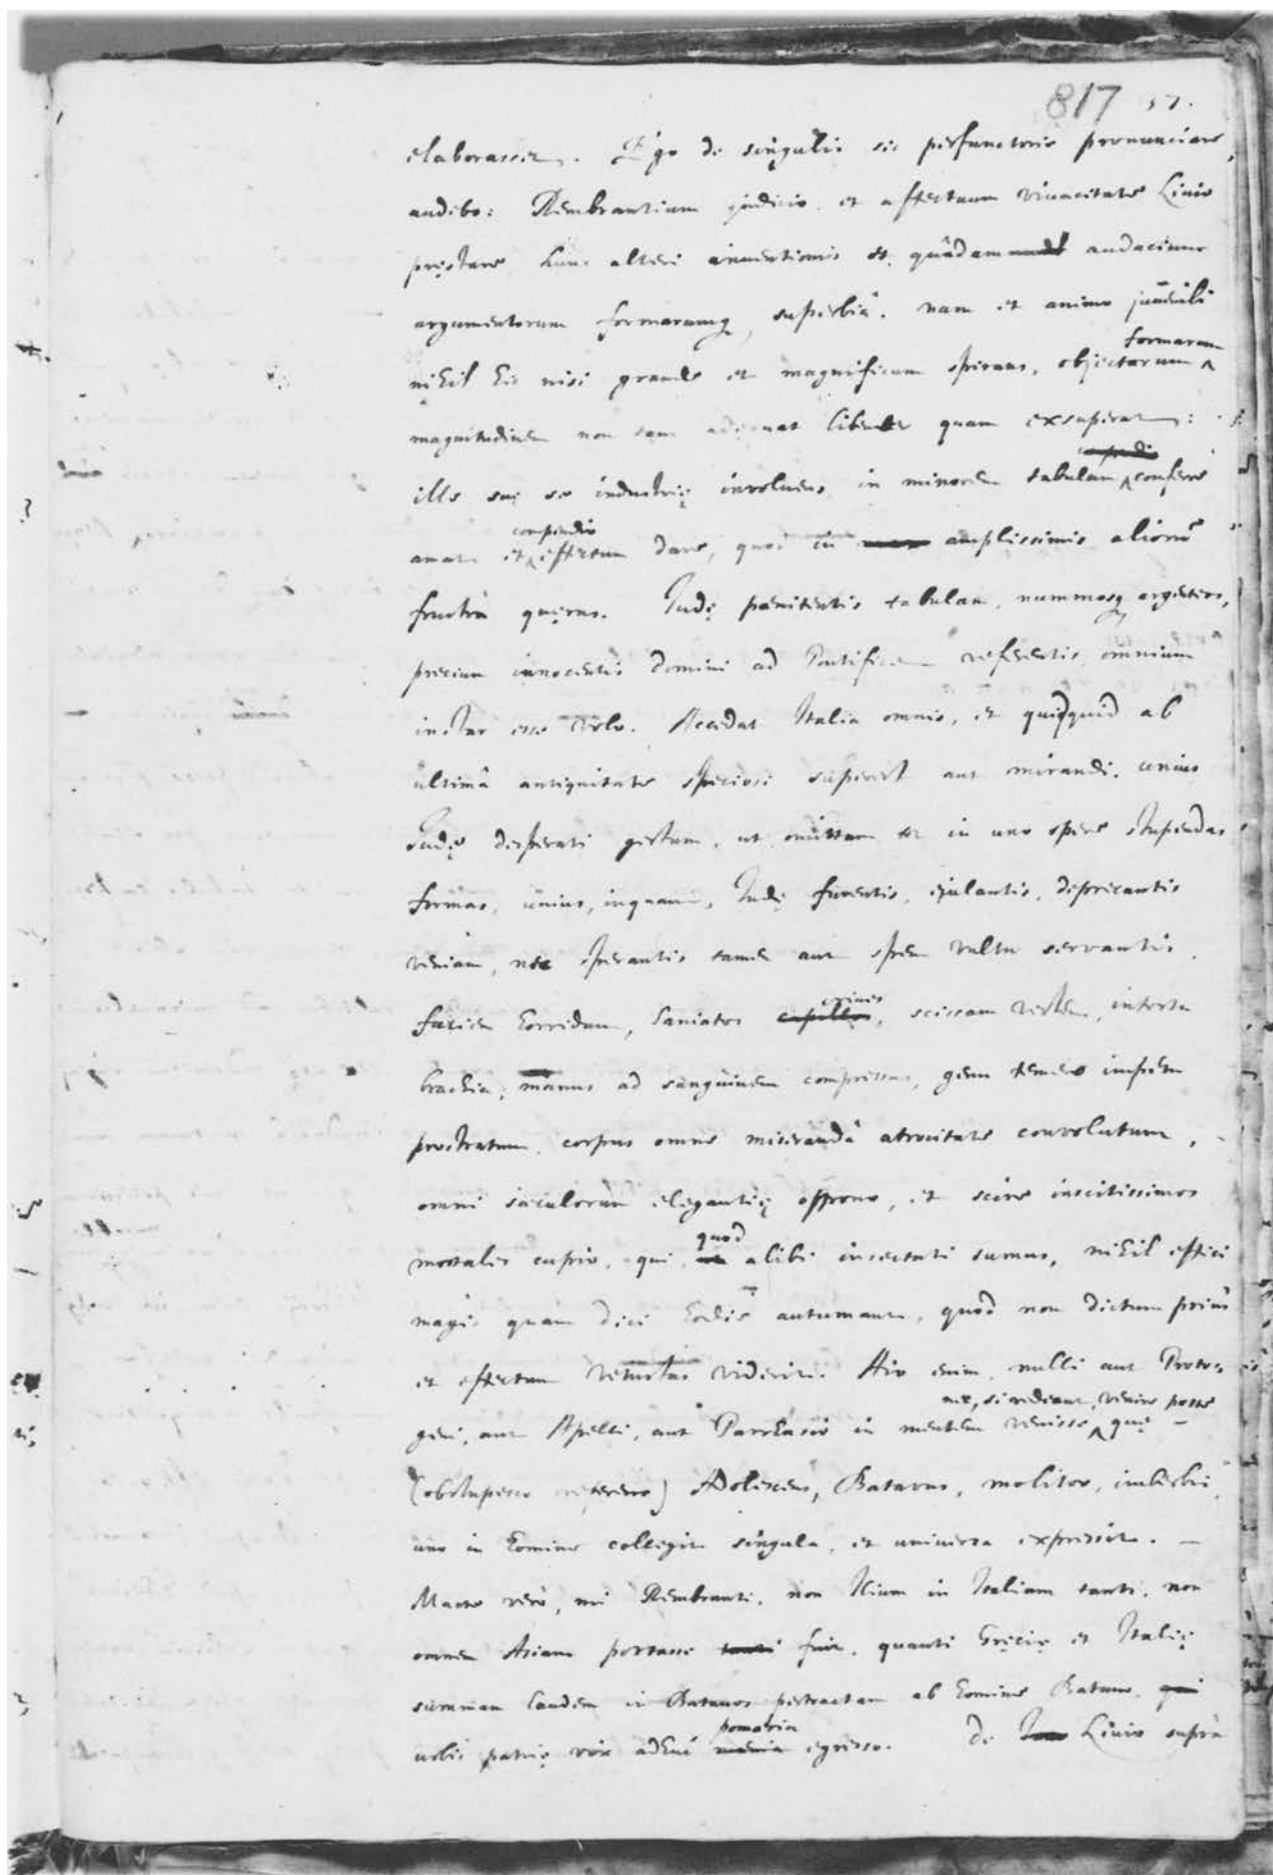 817 17.
elaborasset. Ego de singulis sic perfunctorie pronunciare
audebo: Rembrantium judicio et affectuum vivacitate Livio
pręstare. hunc alteri inventionis et quâdam audaciume
argumentorum formarumq superbiâ. nam et animo juvenili
formarum
nihil hic nisi grande et magnificum spirans, objectarum
magnitudinem non tam adęquat libenter quam exsuperat:
ille suę se industrię involvens in minorem tabulam conferre
compendio
amat et effectum dare, quod in amplissimis aliorũ
frustrà quęras. Judę pœnitentis tabulam, nummosq argenteos,
precium innocentis domini ad Pontificem referentis, omnium
instar esse volo. Accedat Italia omnis, et quidquid ab
ultimâ antiquitate speciosi superest aut mirandi. unius
Judę desperati gestum, ut omittam tot in uno opere stupendas
formas, unius, inquam, Judę furentis, ejulantis, deprecantis
veniam, nec sperantis tamen aut spem vultu servantis,
crines
faciem horridam, laniatos capillos, scissam vestem, intorta
brachia, manus ad sanguinem compressas, genu temere impetu
prostratum, corpus omne miserandâ atrocitate convolutum,
omni sæculorum elegantię oppono, et scire inscitissimos
quod
mortales cupio, qui, alibi insectati sumus, nihil effici
magis quàm dici hodie autumant, quod non dictum prius
et effectum vetustas viderit. Aio enim, nulli aut Proto-
aut, si redeant, venire posse
geni, aut Apelli, aut Parrhasio in mentem venisse quę
(obstupesco referens) Adolescens, Batavus, molitor, imberbis,
uno in homine collegit singula, et universa expressit.
Macte verò, mi Rembranti. non Ilium in Italiam tanti, non
omnem Asiam portasse tanti fuit, quanti Gręcię et Italię
summam laudem in Batavos pertractam ab homine Batavo, qui
pomœria
urbis patrię vix adhuc mœnia egresso. De Livio suprà